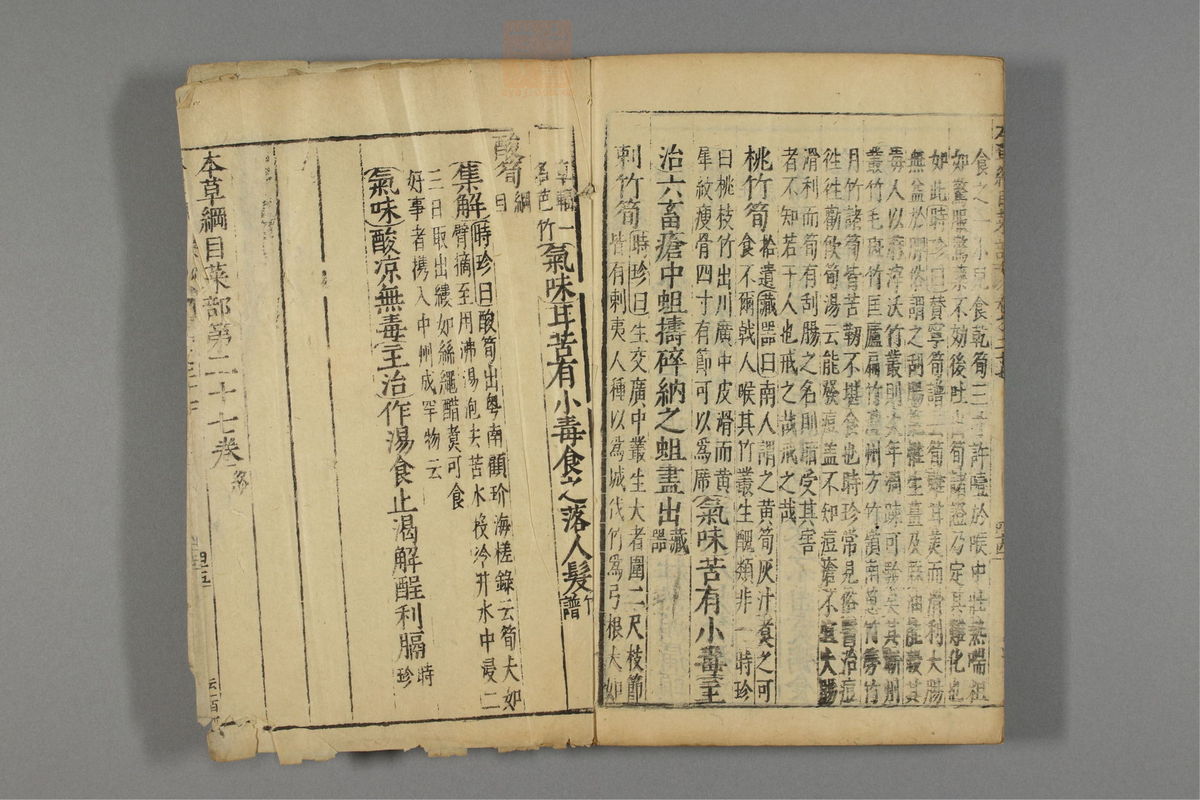 食之 小兒食乾筍三寸許噎於喉中壯熱喘粗
如驚服驚藥不效後吐出筍諸證乃定其難化也
如此時珍曰贊寧筍譜云筍雖甘美而滑利大腸
無益於脾俗謂之刮腸篦惟生薑及麻油能殺其
毒人以麻滓沃竹叢則次年凋疎可驗矣其蘄州
叢竹毛斑竹匡廬扁竹灃州方竹嶺南䈽竹簩竹
月竹諸筍皆苦韌不堪食也時珍常見俗醫治痘
徃徃勸飲筍湯云能發痘盖不知痘瘡不宜大腸
滑利而筍有刮腸之名則暗受其害
者不知若干人也戒之哉戒之哉
桃竹筍拾遺藏器曰南人謂之黃筍灰汁煑之可
食不爾戟人喉其竹叢生醜類非一時珍
曰桃枝竹出川廣中皮滑而黃
犀紋瘦骨四寸有節可以爲席氣味苦有小毒主
治六畜瘡中蛆擣碎納之蛆盡出藏器
刺竹筍時珍曰生交廣中叢生大者圍二尺枝節
皆有刺夷人種以爲城伐竹爲弓根大如
車輻一
名芭竹氣味甘苦有小毒食之落人髮竹譜
酸筍綱目
集解時珍曰酸筍出粵南顧玠海槎錄云筍大如
臂摘至用沸湯泡去苦水投冷井水中浸二
三日取出縷如絲繩醋煑可食
好事者攜入中州成罕物云
氣味酸凉無毒主治作湯食止渴解酲利膈時珍
本草綱目菜部第二十七卷終